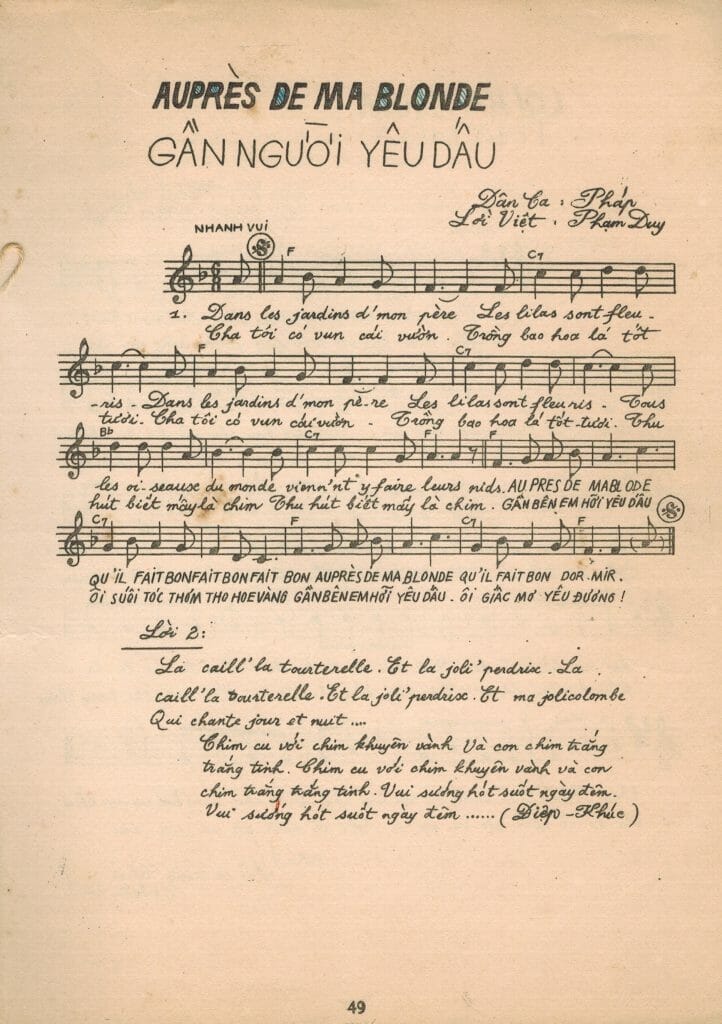 AUPRÈS DE MA BLONDE
GẦN NGƯỜI YÊU DẤU
Dân Ca : Pháp
Lời Việt . Phạm Duy
NHANH VUI
F C7
1. Dans les jardins d'mon père Les lilas sont fleu -
Cha tôi có vun cái vườn. Trồng bao hoa lá tốt
F C7
-ris - Dans les jardins d'mon pè-re Les lilas sont fleu ris - Tous
tươi. Cha tôi có vun cái vườn - Trồng bao hoa lá tốt-tươi. Thu
Bb F C7 F F
les oi-seause du monde vienn'nt y faire leurs nids. AU PRES DE MA BLODE
hút biết mấy là chim Thu hút biết mấy là chim. GẦN BÊN EM HỠI YÊU DẤU
C7 F C7 F
QU'IL FAIT BON FAIT BON FAIT BON AUPRÈS DE MA BLONDE QU'IL FAIT BON DOR-MIR.
ÔI SUỐI TÓC THƠM THO HOE VÀNG GẦN BÊN EM HỠI YÊU DẤU. ÔI GIẤC MƠ YÊU ĐƯƠNG !
Lời 2:
La caill' la tourterelle. Et la joli' perdrix. La
caill' la tourterelle. Et la joli' perdrix. Et ma joli colombe
Qui chante jour et nuit ....
Chim cu với chim khuyên vành Và con chim trắng
trắng tinh. Chim cu với chim khuyên vành và con
chim trắng trắng tinh. Vui sướng hót suốt ngày đêm.
Vui sướng hót suốt ngày đêm ...... ( Điệp - Khúc )
49